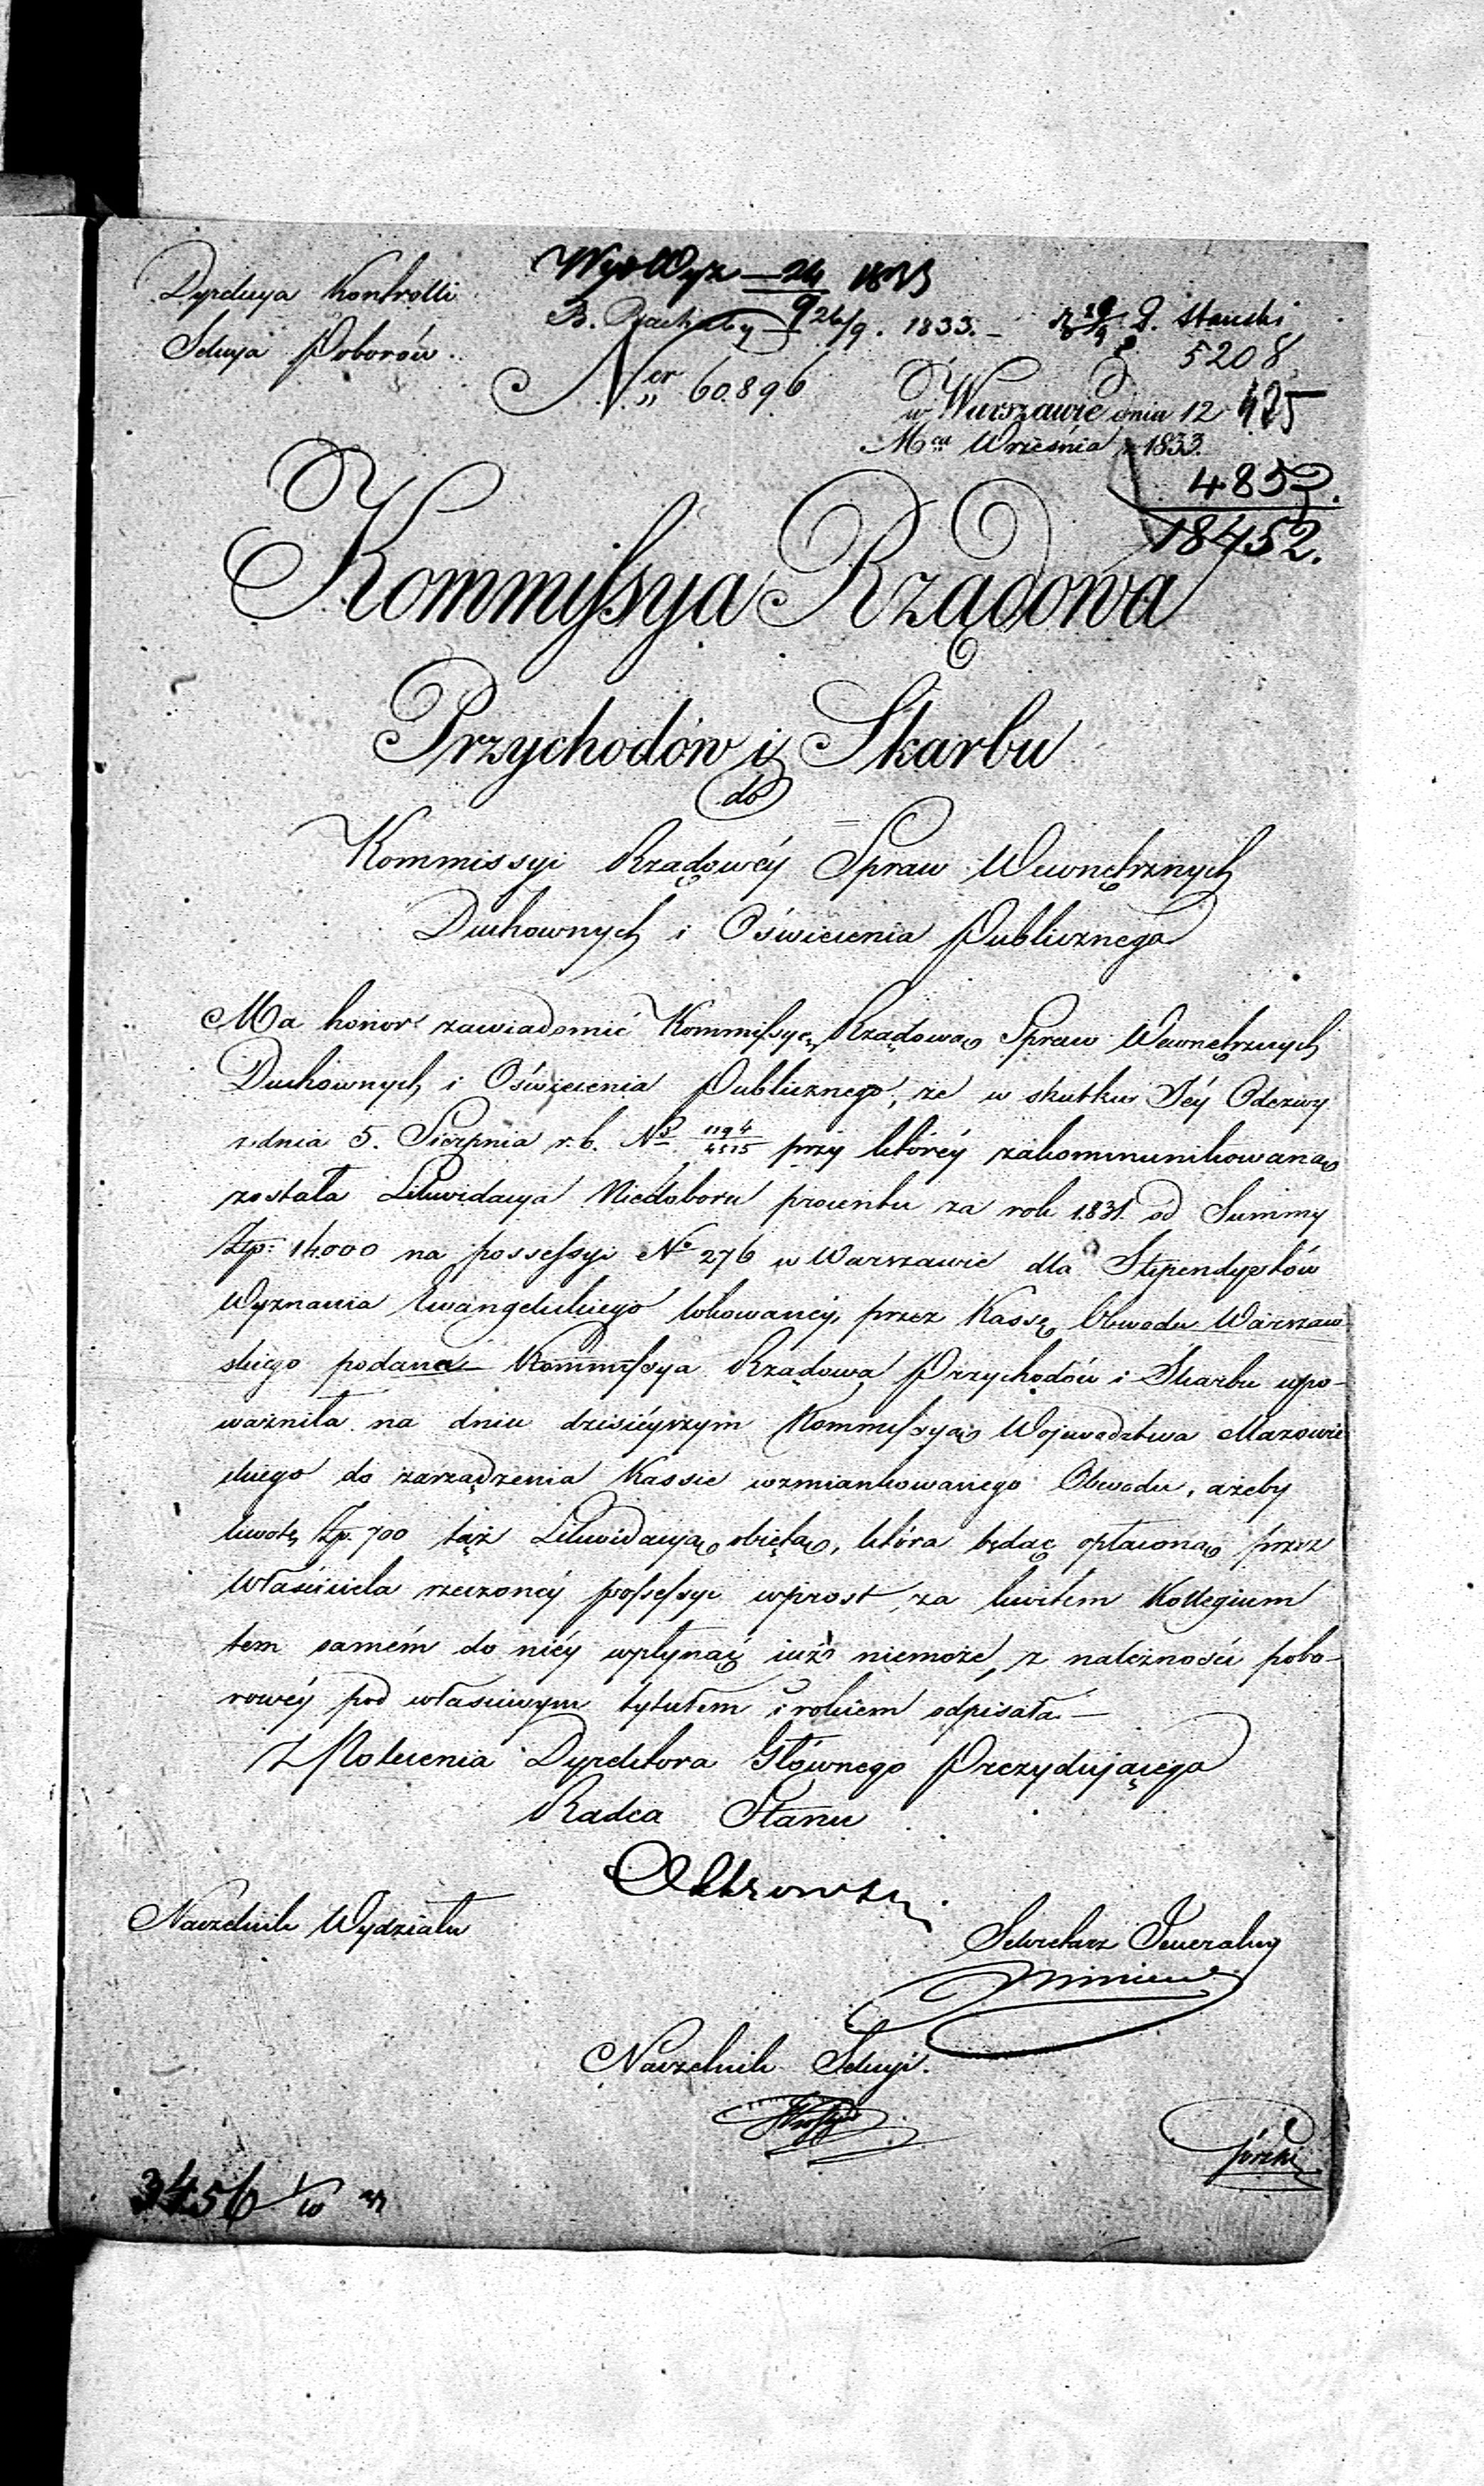 Dyrekcya Kontrolli
Sekcya Poborów.
24 1833
9
B. 26/9. 1833.
5208
Ner 60896
w Warszawie dnia 12
Mca Września 1833.
485
18452.
Kommissya Rządowa
Przychodów i Skarbu
do
Kommissyi Rządowéy Spraw Wewnętrznych
Duchownych i Oświecenia Publicznego
Ma honor zawiadomić Kommissyę Rządową Spraw Wewnętrznych
Duchownych i Oświecenia Publicznego, że w skutku Jéy Odezwy
z dnia 5. Sierpnia r. b. No 1194/4515 przy któréy zakommunikowaną
została Likwidacya Niedoboru procentu za rok 1831. od Summy
Złp: 14000 na possessyi No 276 w Warszawie dla Stypendystów
Wyznania Ewangelickiego lokowanéy, przez Kassę Obwodu Warszaw-
skiego podana — Kommissya Rządowa Przychodów i Skarbu upo-
ważniła na dniu dzisiéyszym Kommissyą Województwa Mazowie-
ckiego do zarządzenia Kassie wzmiankowanego Obwodu, ażeby
kwotę Złp. 700 tąż Likwidacyą obiętą, która będąc opłaconą przez
Właściciela rzeczonéy possessyi wprost, za kwitem Kollegium
tem samém do niéy wpłynąć iuż niemoże, z należności pobo-
rowéy pod właściwym tytułem i rokiem odpisała. —
Z Polecenia Dyrektora Głównego Prezydującego
Radca Stanu
Naczelnik Wydziału
Sekretarz Jeneralny
Naczelnik Sekcyi.
Górski
3456 1/10